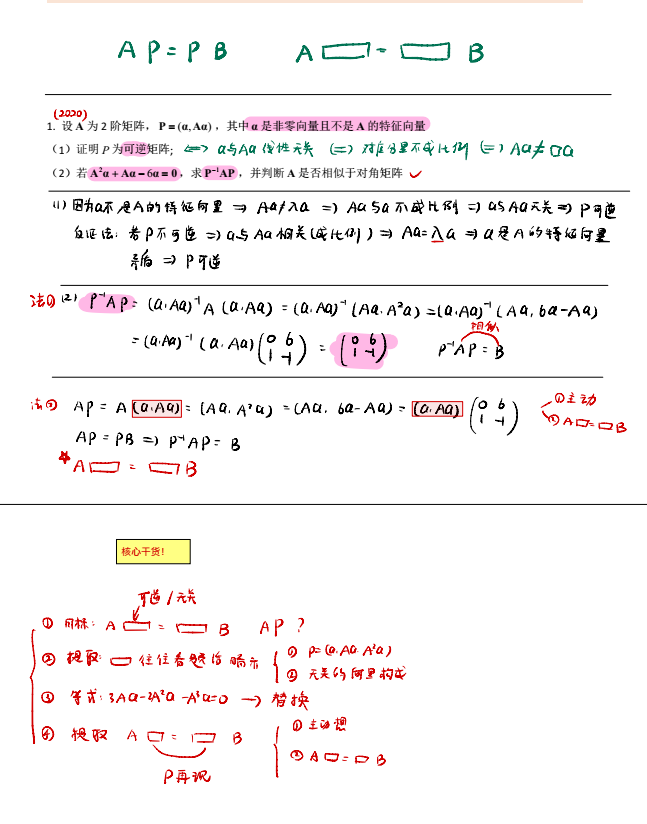 AP = PB A▭ = ▭B
(2020)
1. 设 A 为 2 阶矩阵， P = (α, Aα) ，其中 α 是非零向量且不是 A 的特征向量
（1）证明 P 为可逆矩阵; ⟺ α与Aα 线性无关 ⟺ 对应分量不成比例 ⟺ Aα ≠ □α
（2）若 A²α + Aα − 6α = 0，求 P⁻¹AP，并判断 A 是否相似于对角矩阵 ✓
(1) 因为α不是A的特征向量 ⇒ Aα ≠ λα ⇒ Aα与α不成比例 ⇒ α与Aα无关 ⇒ P可逆
反证法: 若P不可逆 ⇒ α与Aα相关(成比例) ⇒ Aα = λα ⇒ α是A的特征向量
矛盾 ⇒ P可逆
法① (2) P⁻¹AP = (α, Aα)⁻¹ A (α, Aα) = (α, Aα)⁻¹ (Aα, A²α) = (α, Aα)⁻¹ (Aα, 6α−Aα)
相似
= (α, Aα)⁻¹ (α, Aα) (0 6 1 -1) = (0 6 1 -1) P⁻¹AP = B
法② AP = A (α, Aα) = (Aα, A²α) = (Aα, 6α−Aα) = (α, Aα) (0 6 1 -1) ①主动
② A▭=▭B
AP = PB ⇒ P⁻¹AP = B
A▭ = ▭B
核心干货！
可逆/无关
① 目标: A▭ = ▭B AP ?
② 提取: ▭往往看题治暗示 ① P=(α, Aα, A²α)
② 无关的向量构成
③ 等式: 3Aα−2A²α−A³α=0 → 替换
④ 提取 A▭ = ▭B ① 主动想
② A▭=▭B
P再现